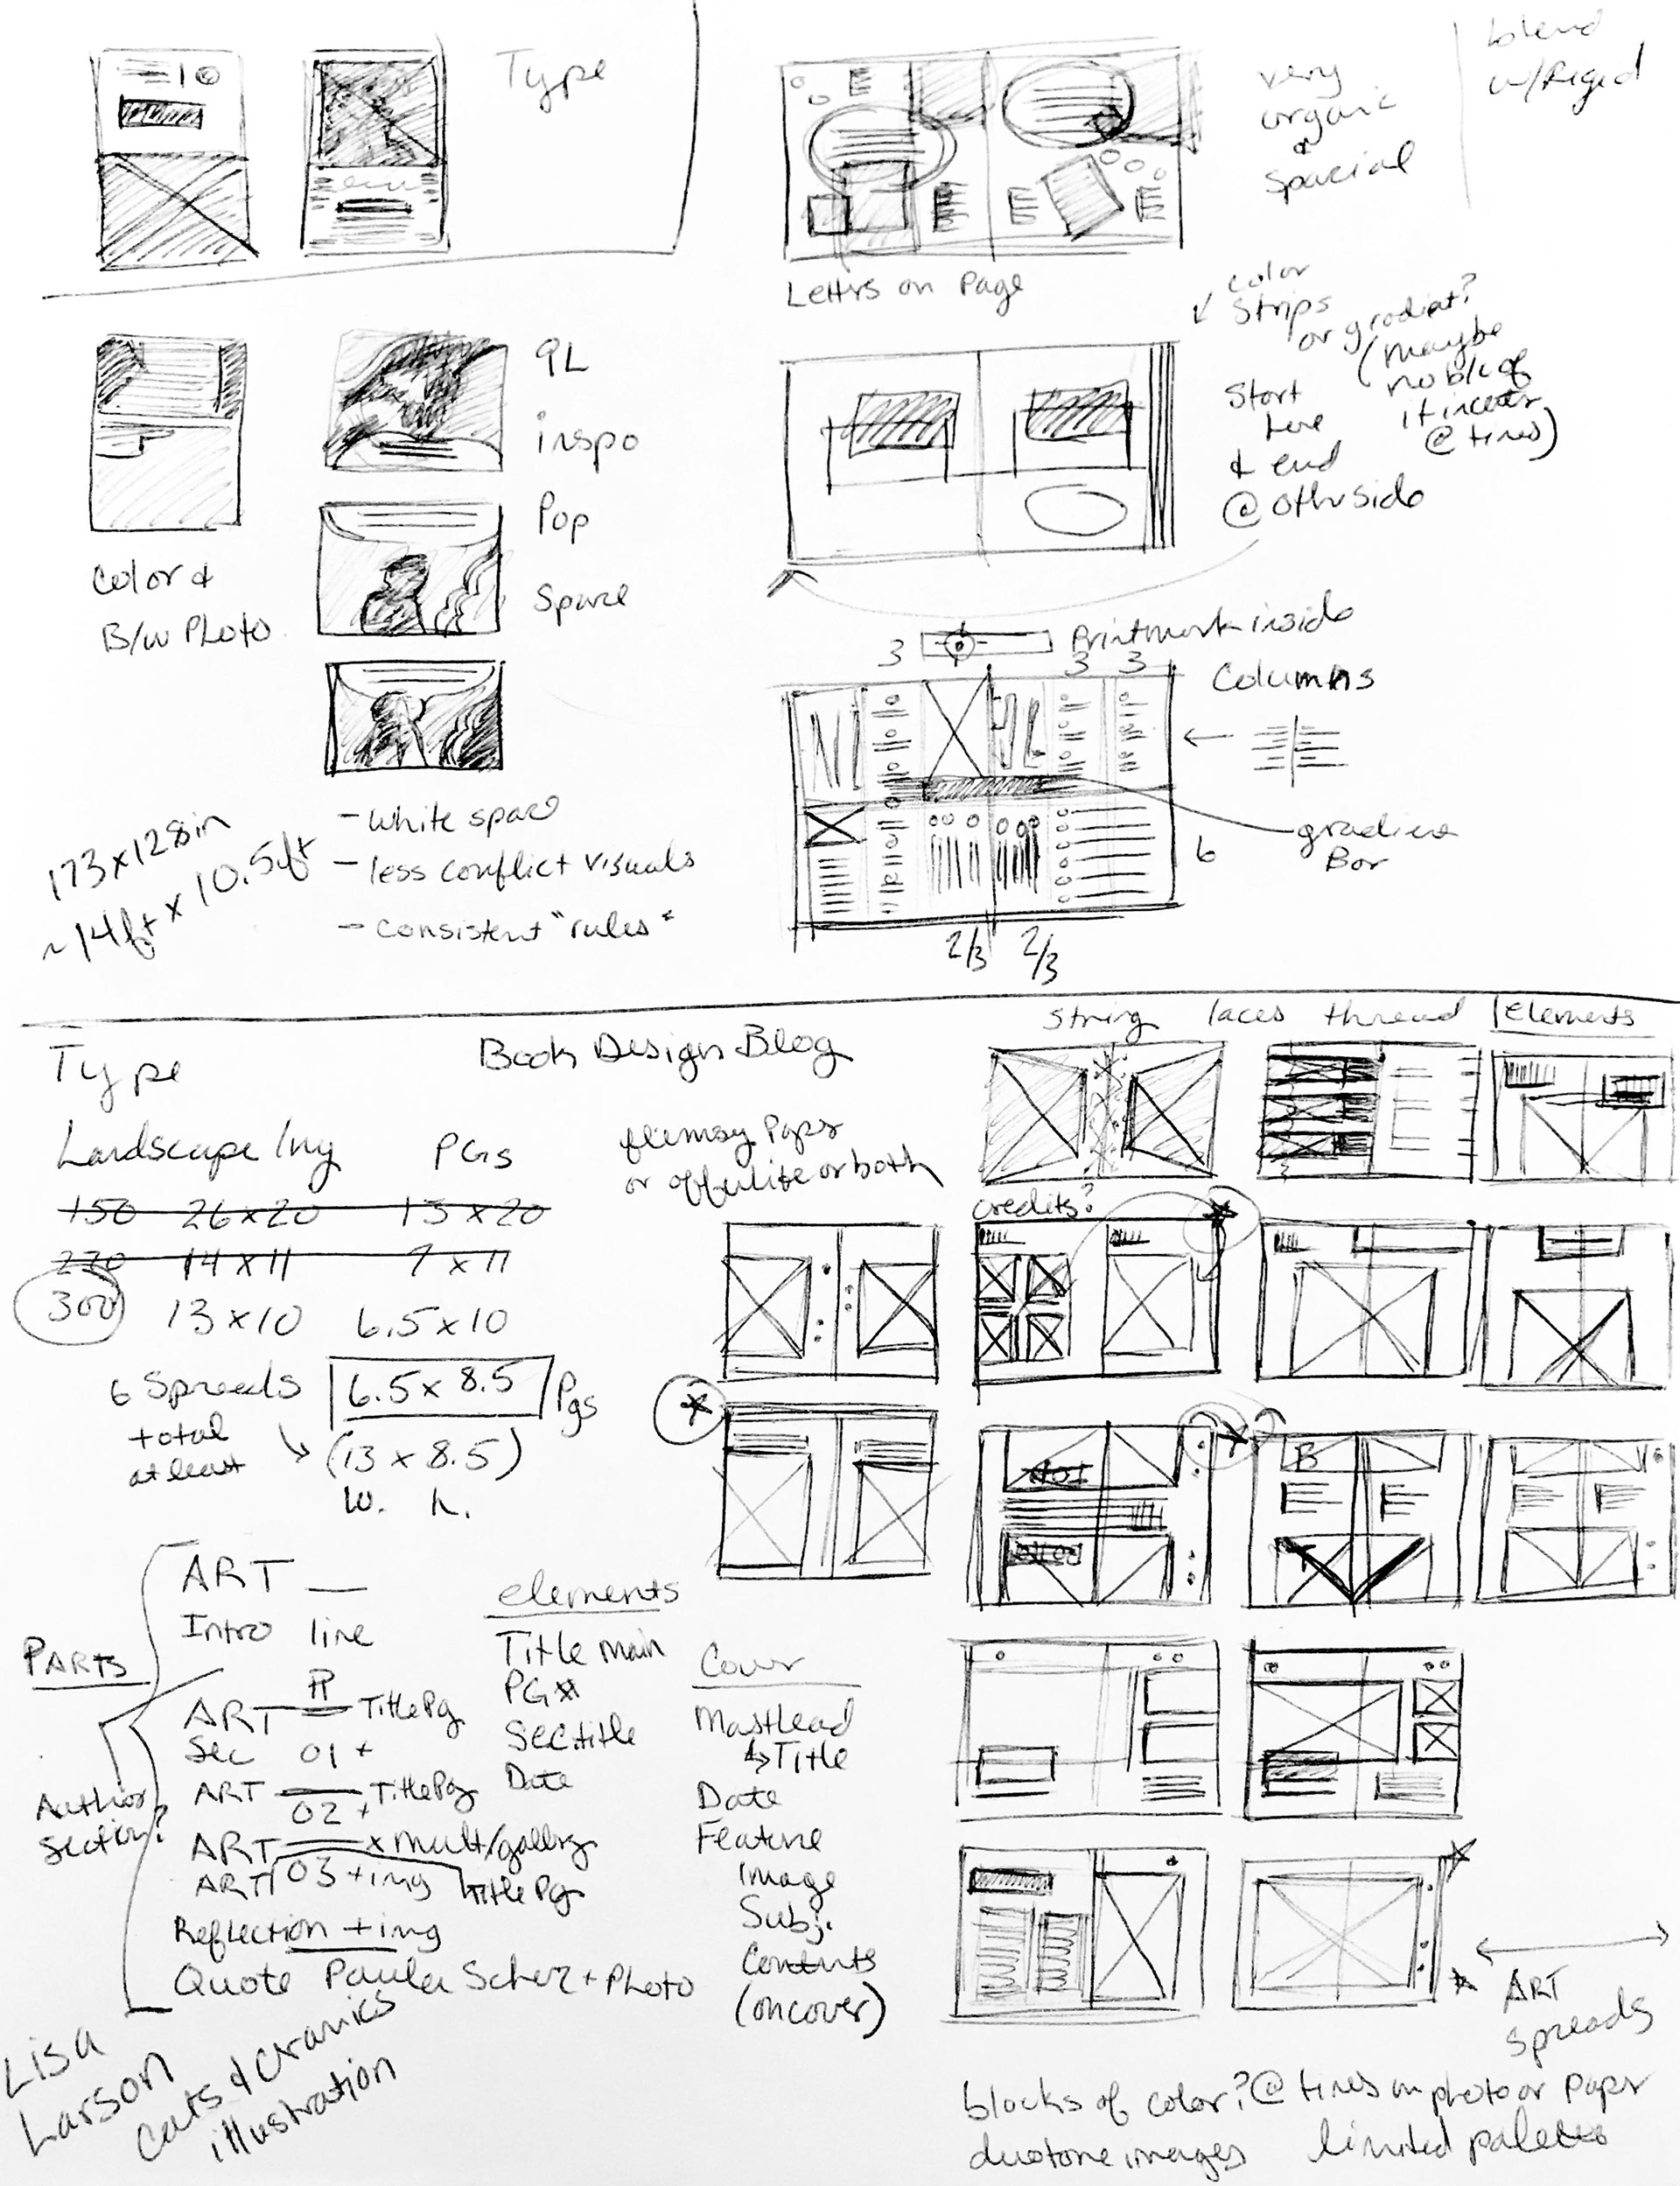 Type
very
organic
&
Spacial
blend
w/Rigid
Letters on Page
Color
Strips
or gradient?
(maybe
no blc of
it
@ times)
Start
here
& end
@ othr side
QL
inspo
Pop
Space
Color &
B/w Photo
3
Printmark inside
3 3
Columns
gradient
Bar
6
2/3 2/3
- white space
- less conflict visuals
- Consistent "rules"
173 x 128in
~14ft x 10.5ft
string laces thread Elements
Type
Book Design Blog
Landscape Img PGs
150 26 x 20 13 x 20
14 x 11 7 x 11
300 13 x 10 6.5 x 10
6 Spreads 6.5 x 8.5 Pgs
total
at least (13 x 8.5)
w. h.
flimsy Papr
or or both
credits?
B
T
PARTS
Author
Section?
ART
Intro line
ART Title Pg
Sec 01 +
ART Title Pg
02 +
ART x mult/gallery
ART 03 + img Title Pg
Reflection + img
Quote Paula Scher + Photo
elements
Title main
PG#
Sec title
Date
Cover
Masthead
↳ Title
Date
Feature
Image
Subj.
Contents
(on cover)
ART
spreads
Lisa
Larson
Cats & Ceramics
illustration
blocks of color? @ times on photo or Papr
duotone images limited palette